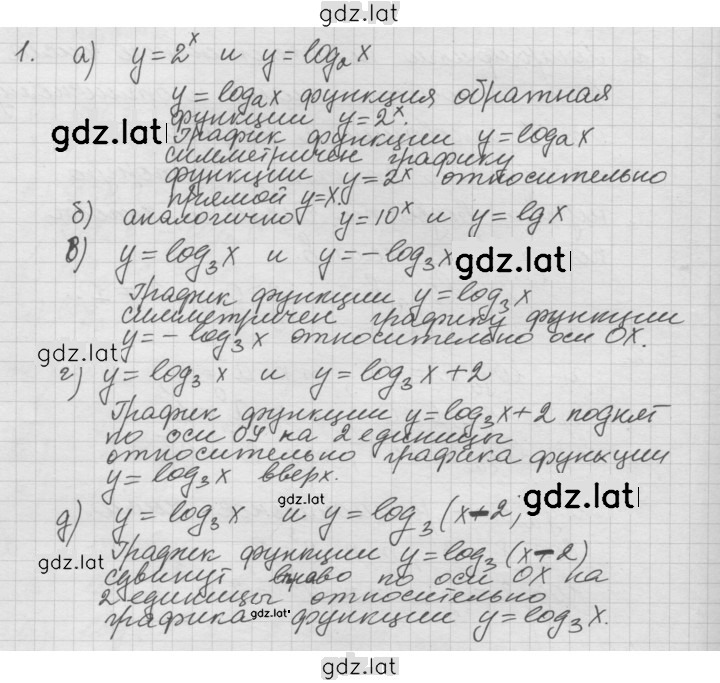 gdz.lat
1. а) y = 2ˣ и y = logₐ x
y = logₐ x функция обратная
функции y = 2ˣ.
gdz.lat
График функции y = logₐ x
симметричен графику
функции y = 2ˣ относительно
прямой y = x.
б) аналогично y = 10ˣ и y = lg x
в) y = log₃ x и y = – log₃ x gdz.lat
График функции y = log₃ x
симметричен графику функции
y = – log₃ x относительно оси OX.
gdz.lat
г) y = log₃ x и y = log₃ x + 2
График функции y = log₃ x + 2 поднят
по оси OY на 2 единицы
относительно графика функции
y = log₃ x вверх.
gdz.lat gdz.lat
д) y = log₃ x и y = log₃ (x – 2)
График функции y = log₃ (x – 2)
gdz.lat
сдвинут вправо по оси OX на
2 единицы относительно
графика gdz.lat функции y = log₃ x.
gdz.lat